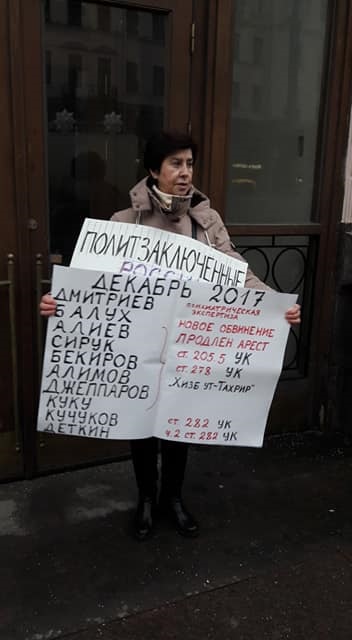 ПОЛИТЗАКЛЮЧЕННЫЕ
РОССИ
ДЕКАБРЬ 2017
ДМИТРИЕВ
БАЛУХ
АЛИЕВ
СИРУК
БЕКИРОВ
АЛИМОВ
ДЖЕППАРОВ
КУКУ
КУЧУКОВ
ДЕТКИН
ПСИХИАТРИЧЕСКАЯ
ЭКСПЕРТИЗА
НОВОЕ ОБВИНЕНИЕ
ПРОДЛЕН АРЕСТ
СТ. 205.5 УК
СТ. 278 УК
„ХИЗБ УТ-ТАХРИР"
СТ. 282 УК
Ч.2 СТ. 282 УК